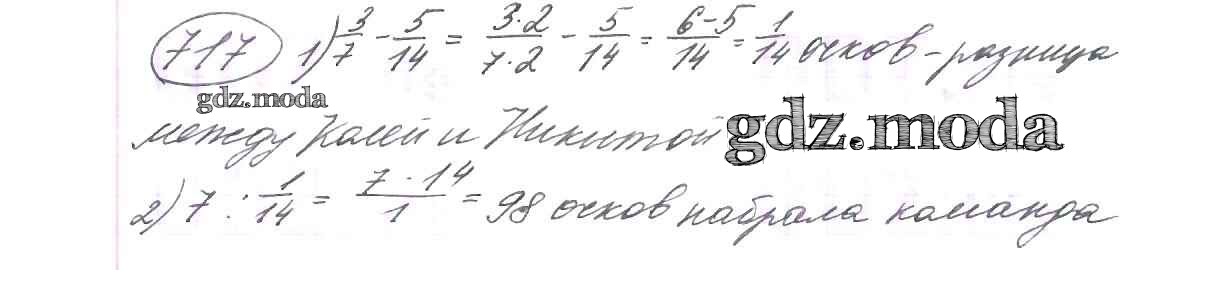 717 1) 3/7 - 5/14 = 3·2/7·2 - 5/14 = 6-5/14 = 1/14 очков - разница
gdz.moda
между Колей и Никитой gdz.moda
2) 7 : 1/14 = 7·14/1 = 98 очков набрала команда